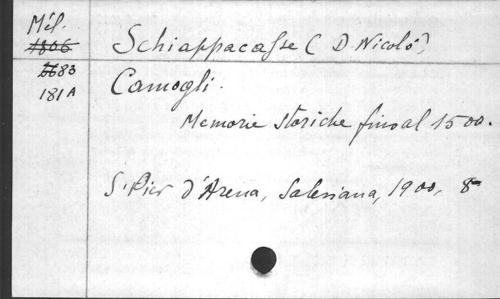 Mél.
1806
6683
181A
Schiappacasse (D. Nicoló)
Camogli.
Memorie storiche fino al 1500.
S. Pier d'Arena, Salesiana, 1900, 8°